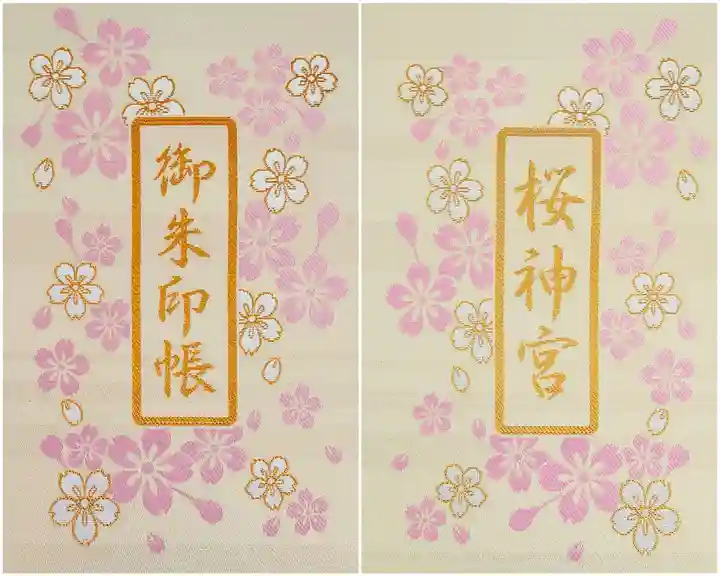 御朱印帳
桜神宮